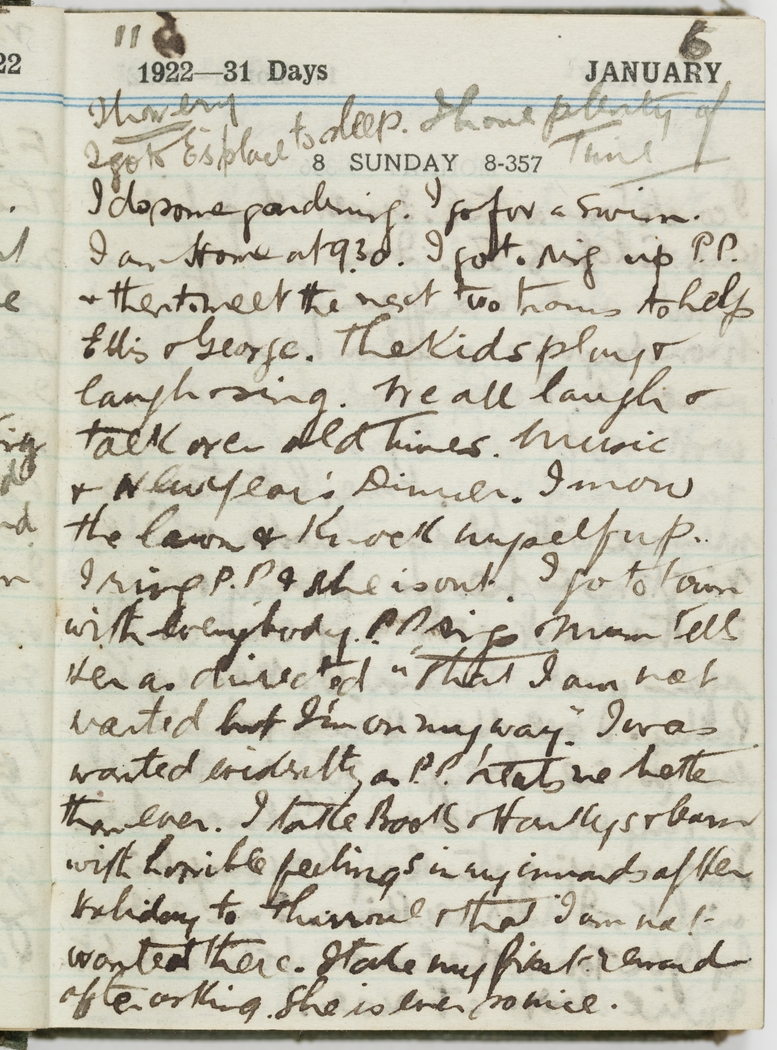 22
11 6
1922—31 Days JANUARY
However
I go to E's place to sleep. I have plenty of
Time
8 SUNDAY 8-357
I do some gardening. I go for a swim.
I am Home at 9.30. I go to ring up P.P.
& then to meet the next two trams to help
Ellis & George. The Kids play &
laugh & sing. We all laugh &
talk over old times. Music
& New Year's Dinner. I mow
the lawn & Knock myself up.
I ring P.P & she is out. I go to Town
with everybody. P.P rings & Mum tells
Her as directed "That I am not
wanted but I'm on my way". I was
wanted evidently as P.P. treats me better
than ever. I take Books & Hankys & burn
with horrible feelings in my innards after Her
Holiday to Thirroul & that I am not
wanted there. I take my first reward
after asking. She is ever so nice.